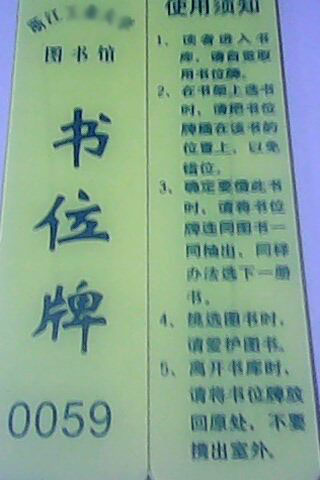 浙江工业大学
图书馆
书
位
牌
0059
使用须知
1、读者进入书
库，请自觉取
用书位牌。
2、在书架上选书
时，请把书位
牌插在该书的
位置上，以免
错位。
3、确定要借此书
时，请将书位
牌连同图书一
同抽出，同样
办法选下一册
书。
4、挑选图书时，
请爱护图书。
5、离开书库时，
请将书位牌放
回原处，不要
携出室外。